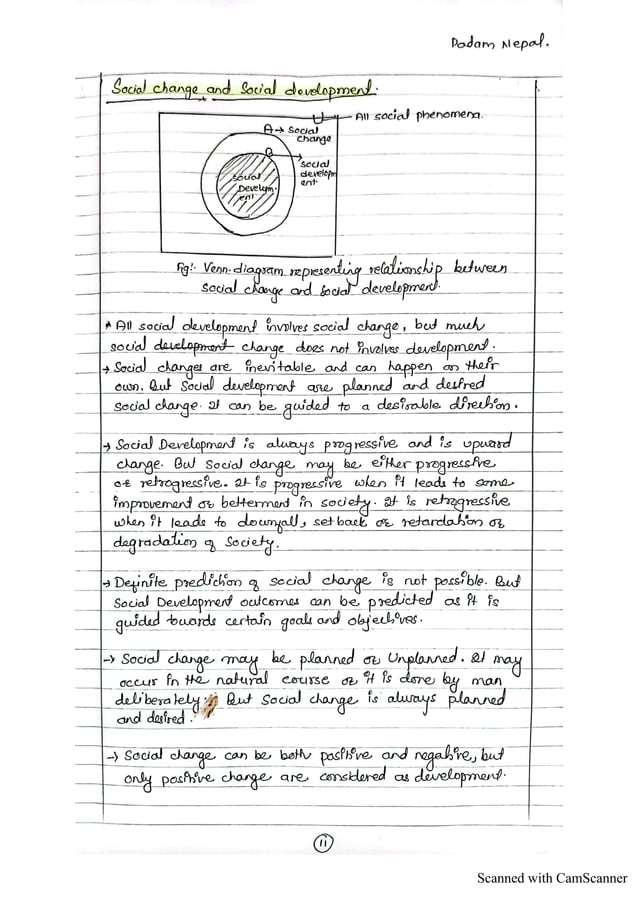 Dadam Nepal.
Social change and Social development.
U
All social phenomena.
A → Social
change
B
social
developm
ent.
Social
Developm
ent
Fig:- Venn-diagram representing relationship between
social change and social development.
* All social development involves social change, but much
social development change does not involves development.
→ Social changes are inevitable and can happen on their
own. But Social development are planned and desired
social change. It can be guided to a desirable direction.
→ Social Development is always progressive and is upward
change. But social change may be either progressive
or retrogressive. It is progressive when it leads to some
improvement or betterment in society. It is retrogressive
when it leads to downfall, setback or retardation or
degradation of Society.
→ Definite prediction of social change is not possible. But
Social Development outcomes can be predicted as it is
guided towards certain goals and objectives.
→ Social change may be planned or Unplanned. It may
occur in the natural course or it is done by man
deliberately. But Social change is always planned
and desired.
→ Social change can be both positive and negative, but
only positive change are considered as development.
11
Scanned with CamScanner